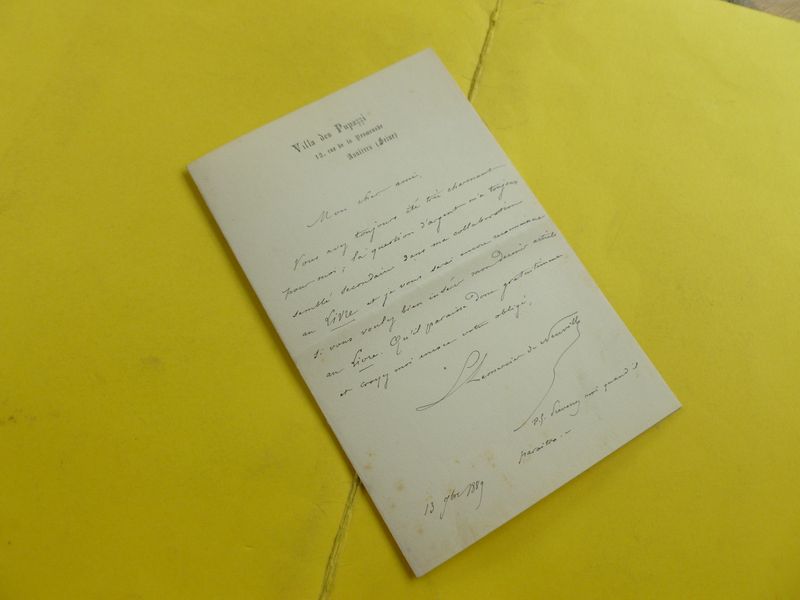 Villa des Pupazzi
12, rue de la Promenade
Asnières (Seine)
Mon cher ami,
Vous avez toujours été très charmant
pour moi; la question d'argent m'a toujours
semblé secondaire dans ma collaboration
au Livre et je vous serai encore reconnaissant
si vous voulez bien insérer mon dernier article
au Livre. Qu'il paraisse donc gratuitement
et croyez moi encore votre obligé,
L. Lemercier de Neuville
P.S. Prévenez moi quand il
paraîtra. –
13 9bre 1889